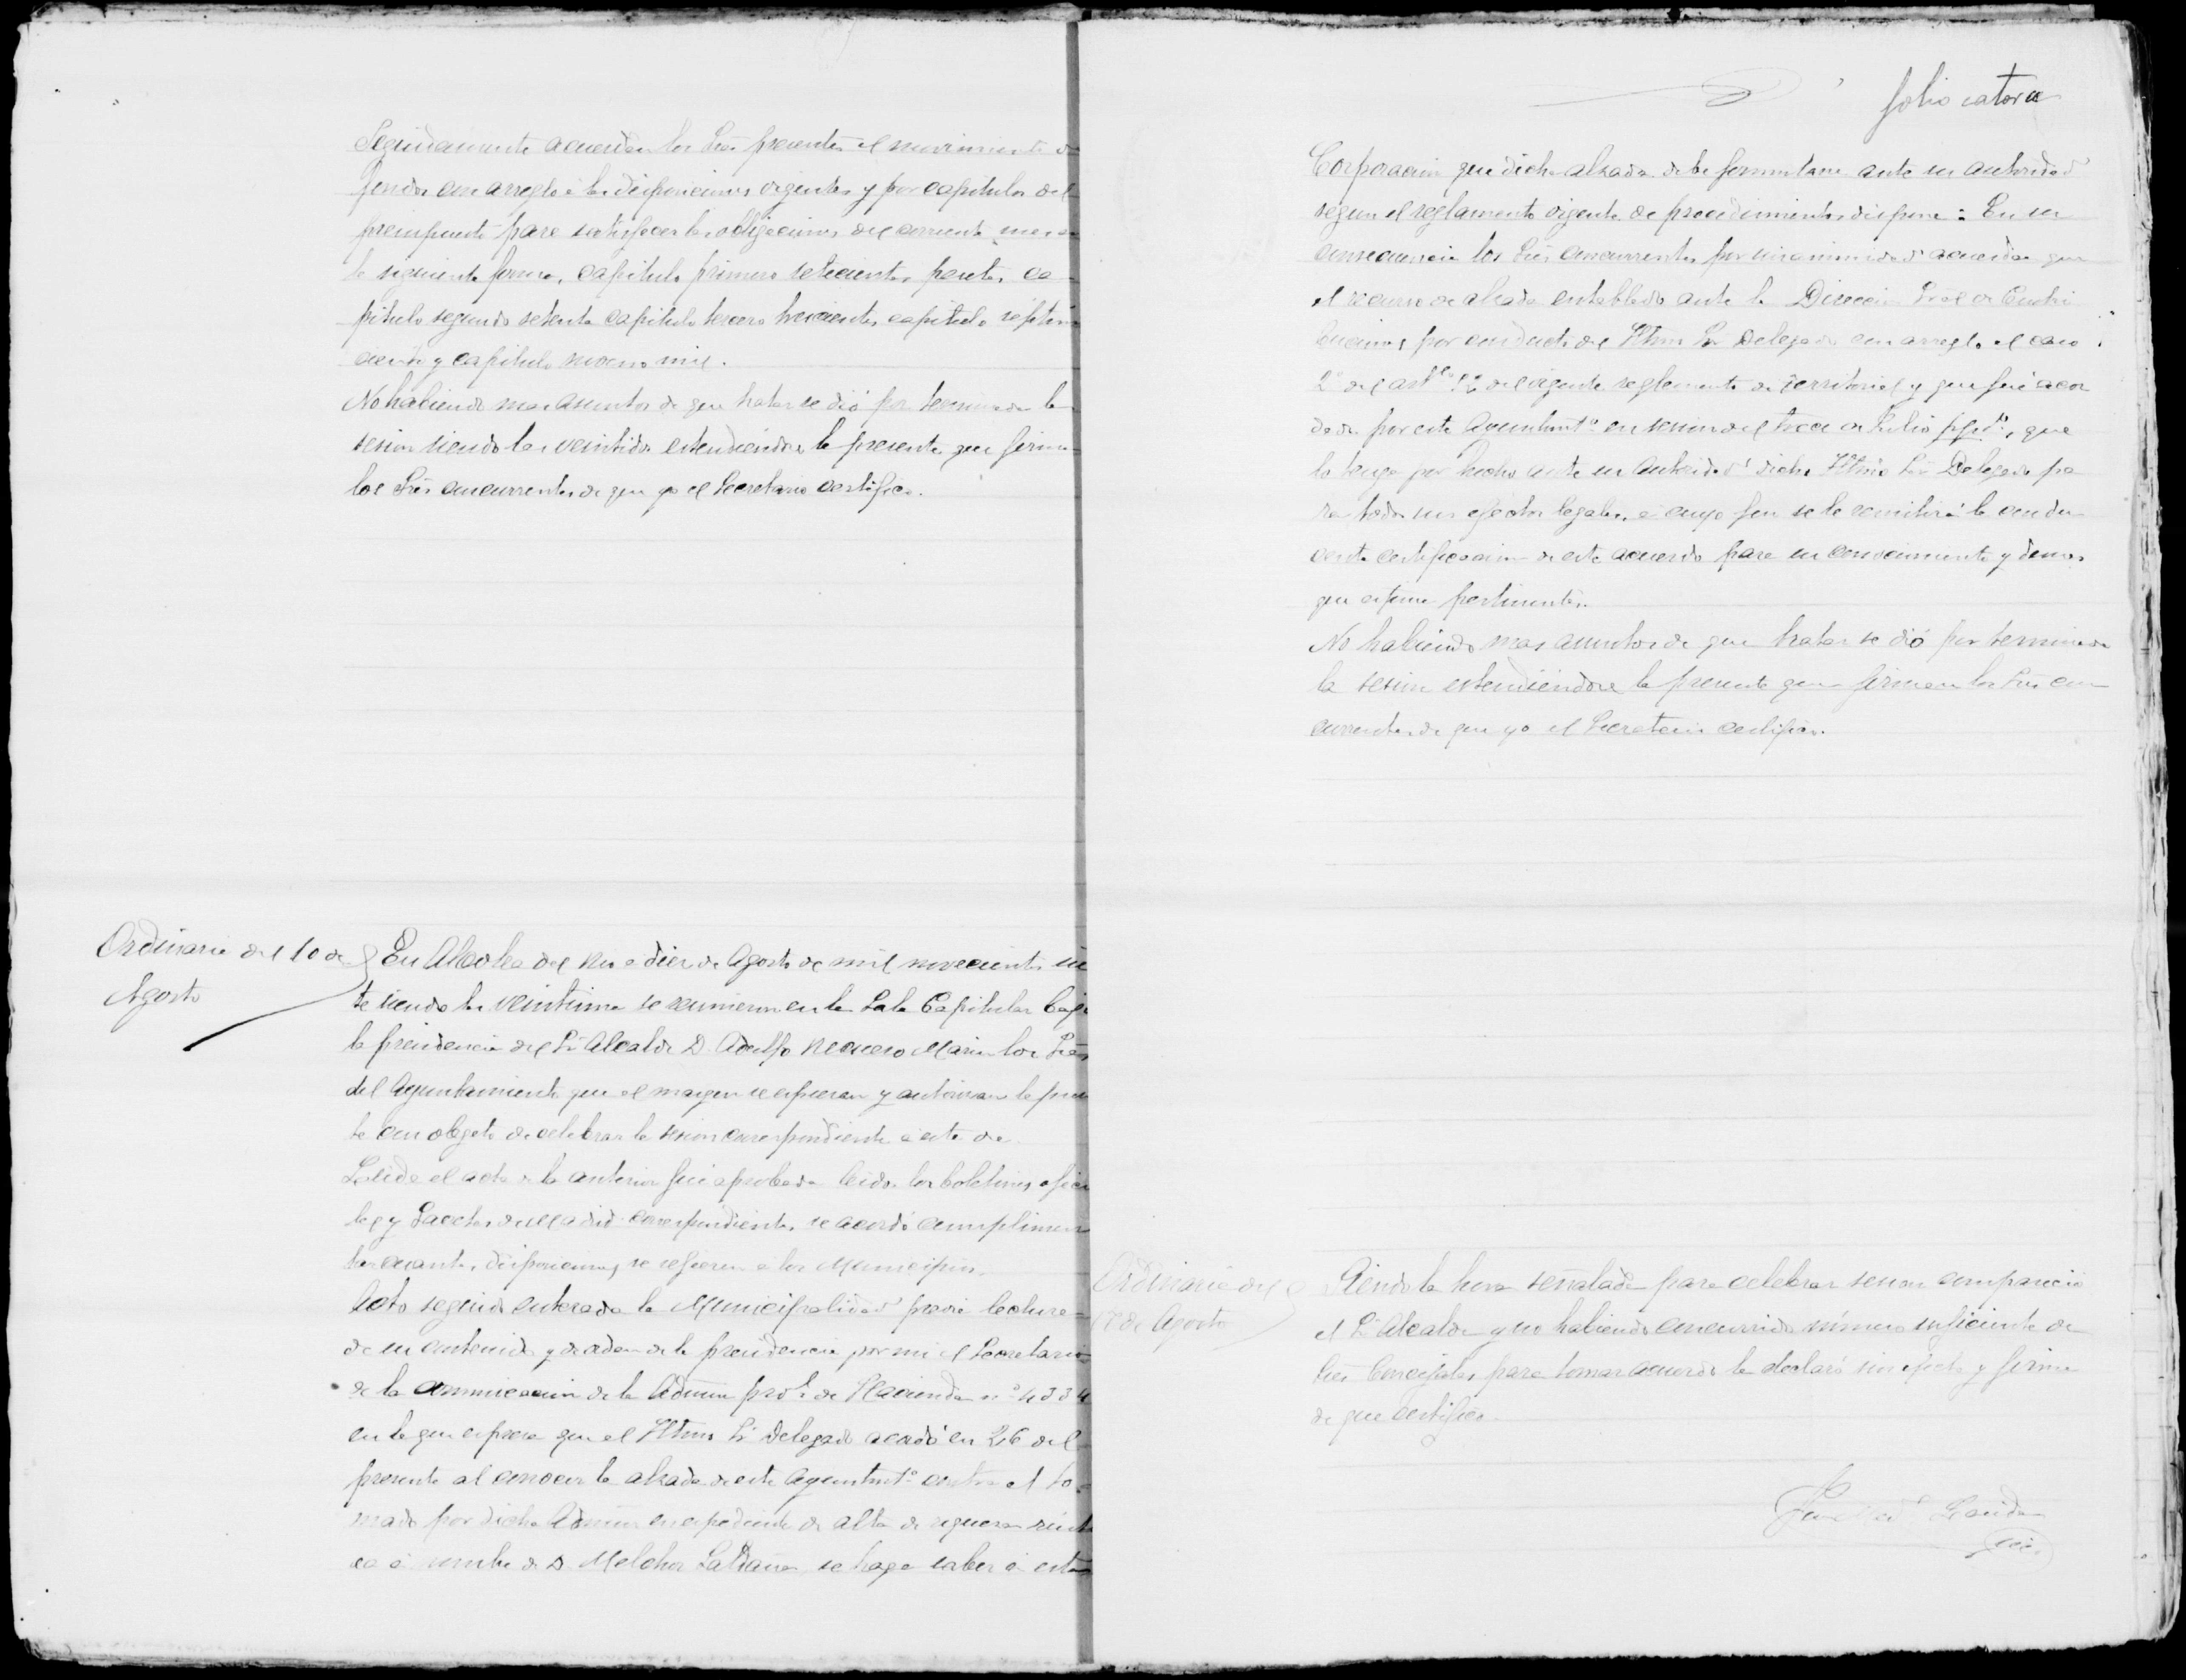 Seguidamente acuerdan los Sres presentes el movimiento de
fondos con arreglo á las disposiciones vigentes y por capitulos del
presupuesto para satisfacer las obligaciones del corriente mes en
la siguiente forma, capitulo primero setecientas pesetas, ca
pitulo segundo setenta capitulo tercero trescientas capitulo séptimo
ciento y capitulo noveno mil.
No habiendo mas asuntos de que tratar se dió por terminada la
sesion siendo las veintidos estendiendose la presente que firman
los Sres concurrentes de que yo el Secretario certifico.
Ordinaria del 10 de
Agosto
En Alcolea del Rio a diez de Agosto de mil novecientos
te siendo las veintiuna se reunieron en la Sala Capitular bajo
la presidencia del Sr Alcalde D. Adolfo Marin los Sres
del Ayuntamiento que al margen se espresan y autorizan la presen
te con objeto de celebrar la sesion correspondiente á este dia
Leida el acta de la anterior fué aprobada leidos los boletines oficia
les y Gacetas de Madrid correspondientes, se acordó cumplimen
tar cuantas disposiciones se refieren á los Municipios.
Acto seguido enterada la Municipalidad previa lectura
de su contenido y de orden de la presidencia por mi el Secretario
de la comunicacion de la Admin prol de Hacienda nº 4334
en la que espresa que el Iltmo Sr Delegado acordó en 26 del
presente al conocer la alzada de este Ayuntmtº contra el to
mado por dicha Admin en espediente de alta de riqueza rústi
ca á nombre de D. Melchor Saldaña, se haga saber á esta
folio catorce
Corporacion que dicha alzada debe formularse ante su autoridad
segun el reglamento vigente de procedimientos dispone: En su
consecuencia los Sres concurrentes por unanimidad acuerdan que
el recurso de alzada entablado ante la Direccion Gral de Contri
buciones por conducto del Iltmo Sr Delegado con arreglo al caso
2º del artº del vigente reglamento de territorial y que fué acor
dada por este Ayuntmtº en sesion del trece de Julio ppdº, que
lo tenga por hecho ante su Autoridad dicho Iltmo Sr Delegado pa
ra todos sus efectos legales, á cuyo fin se le remitirá la condu
cente certificacion de este acuerdo para su conocimiento y demas
que estime pertinentes.
No habiendo mas asuntos de que tratar se dió por terminada
la sesion estendiendose la presente que firman los Sres con
currentes de que yo el Secretario certifico.
Ordinaria del
17 de Agosto
Siendo la hora señalada para celebrar sesion compareció
el Sr Alcalde y no habiendo concurrido número suficiente de
Sres Concejales para tomar acuerdo la declaró sin efecto y firma
de que certifico.